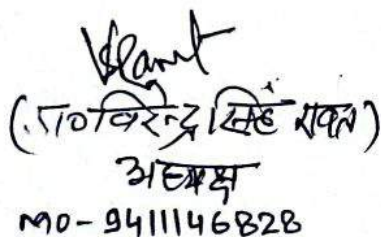 (डा० विरेन्द्र सिंह रावत)
अध्यक्ष
mo-9411146828